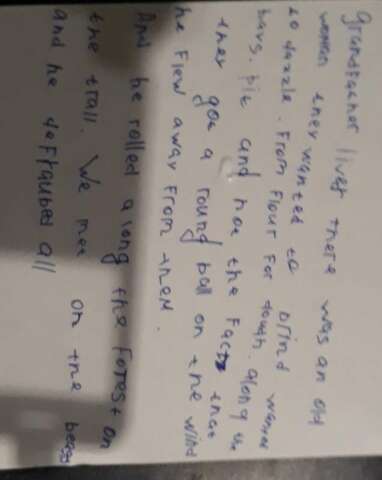 grandfather lives there was an old
woman they wanted to
to dazzle. From flour for dough. along the
bars. bit and not the fact that
they got a round ball on the wind
he flew away from them.
And he rolled along the forest on
the trall. We met on the
and he deftaubed all